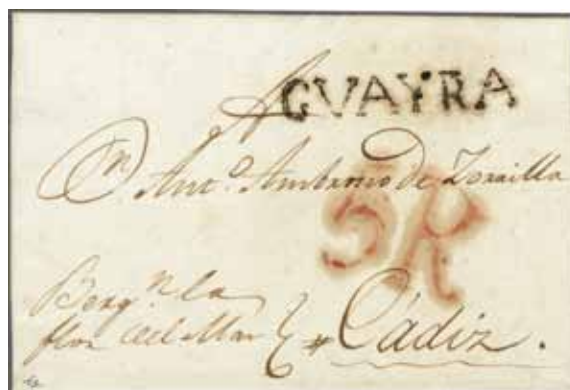 A
GUAYRA
Dn. Anto. Ambrosio de Zorrilla
5R
Bergn. la
flor del Mar
Cádiz.